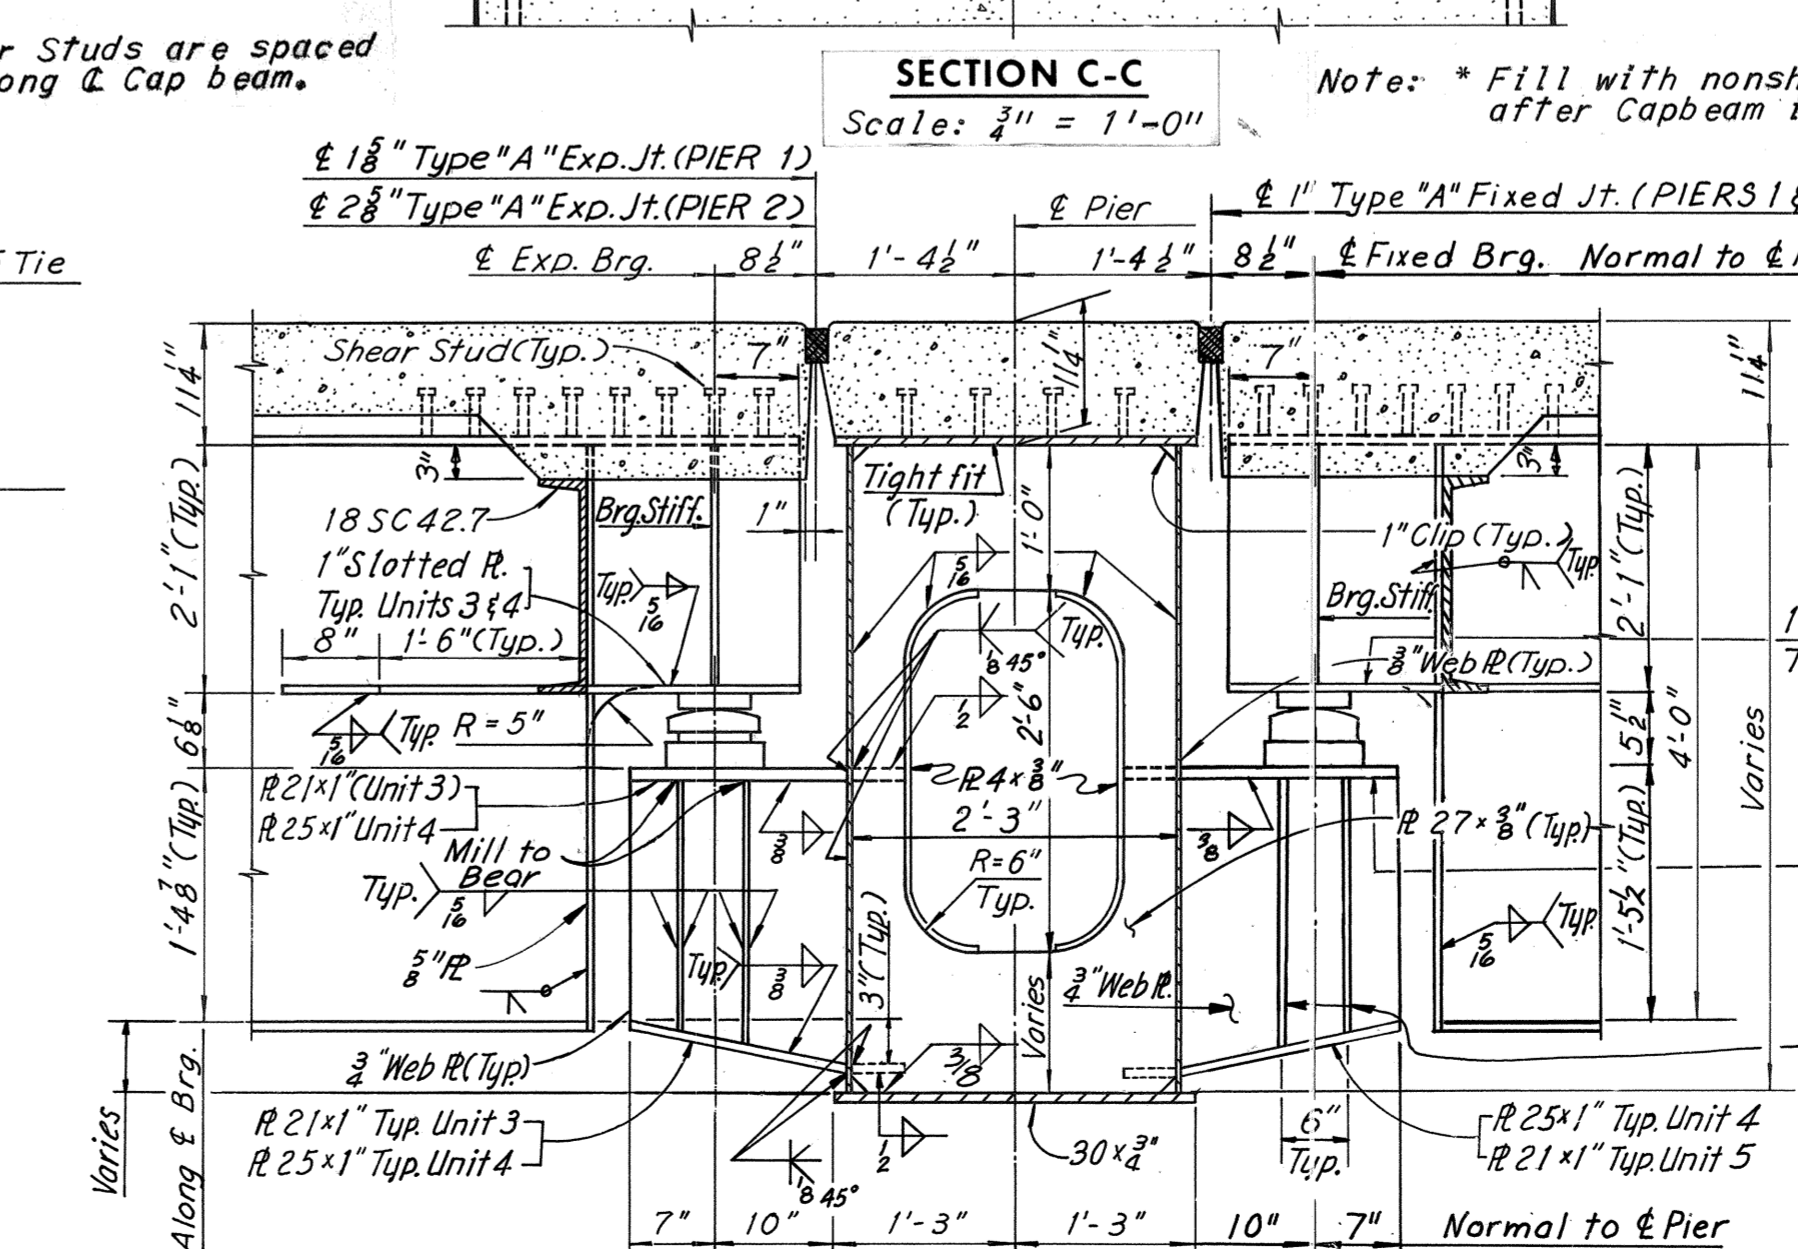 r Studs are spaced
ong ℄ Cap beam.
SECTION C-C
Scale: 3/4" = 1'-0"
Note: * Fill with nonsh
after Capbeam
℄ 1 5/8" Type "A" Exp. Jt. (PIER 1)
℄ 2 5/8" Type "A" Exp. Jt. (PIER 2)
℄ Pier
℄ 1" Type "A" Fixed Jt. (PIERS 1 &
Tie
℄ Exp. Brg.
8 1/2"
1'-4 1/2"
1'-4 1/2"
8 1/2"
℄ Fixed Brg. Normal to ℄
11 1/4"
Shear Stud (Typ.)
7"
11 1/4"
7"
11 1/4"
3"
Tight fit
(Typ.)
3"
2'-1" (Typ.)
18 SC 42.7
Brg. Stiff.
1"
1'-0"
1" Clip (Typ.)
Typ.
2'-1" (Typ.)
1" Slotted ℞.
Typ. Units 3 & 4
Typ.
5/16
5/16
Brg. Stiff.
8"
1'-6" (Typ.)
1/8 45°
Typ.
3/8" Web ℞ (Typ.)
1
7
6 1/8"
5/16
Typ.
R = 5"
1/2
2'-6"
5 1/2"
4'-0"
Varies
℞ 21 × 1" (Unit 3)
℞ 25 × 1" Unit 4
℞ 4 × 3/8"
2'-3"
3/8
3/8
℞ 27 × 3/8" (Typ.)
1'-4 7/8" (Typ.)
Mill to
Bear
Typ.
5/16
R = 6"
Typ.
1'-5 1/2" (Typ.)
5/16
Typ.
5/8" ℞
Typ.
3/8
3" (Typ.)
Varies
3/4" Web ℞.
3/4" Web ℞ (Typ.)
3/8
Varies
Along ℄ Brg.
℞ 21 × 1" Typ. Unit 3
℞ 25 × 1" Typ. Unit 4
1/8 45°
1/2
30 × 3/4"
6"
Typ.
℞ 25 × 1" Typ. Unit 4
℞ 21 × 1" Typ. Unit 5
7"
10"
1'-3"
1'-3"
10"
7"
Normal to ℄ Pier